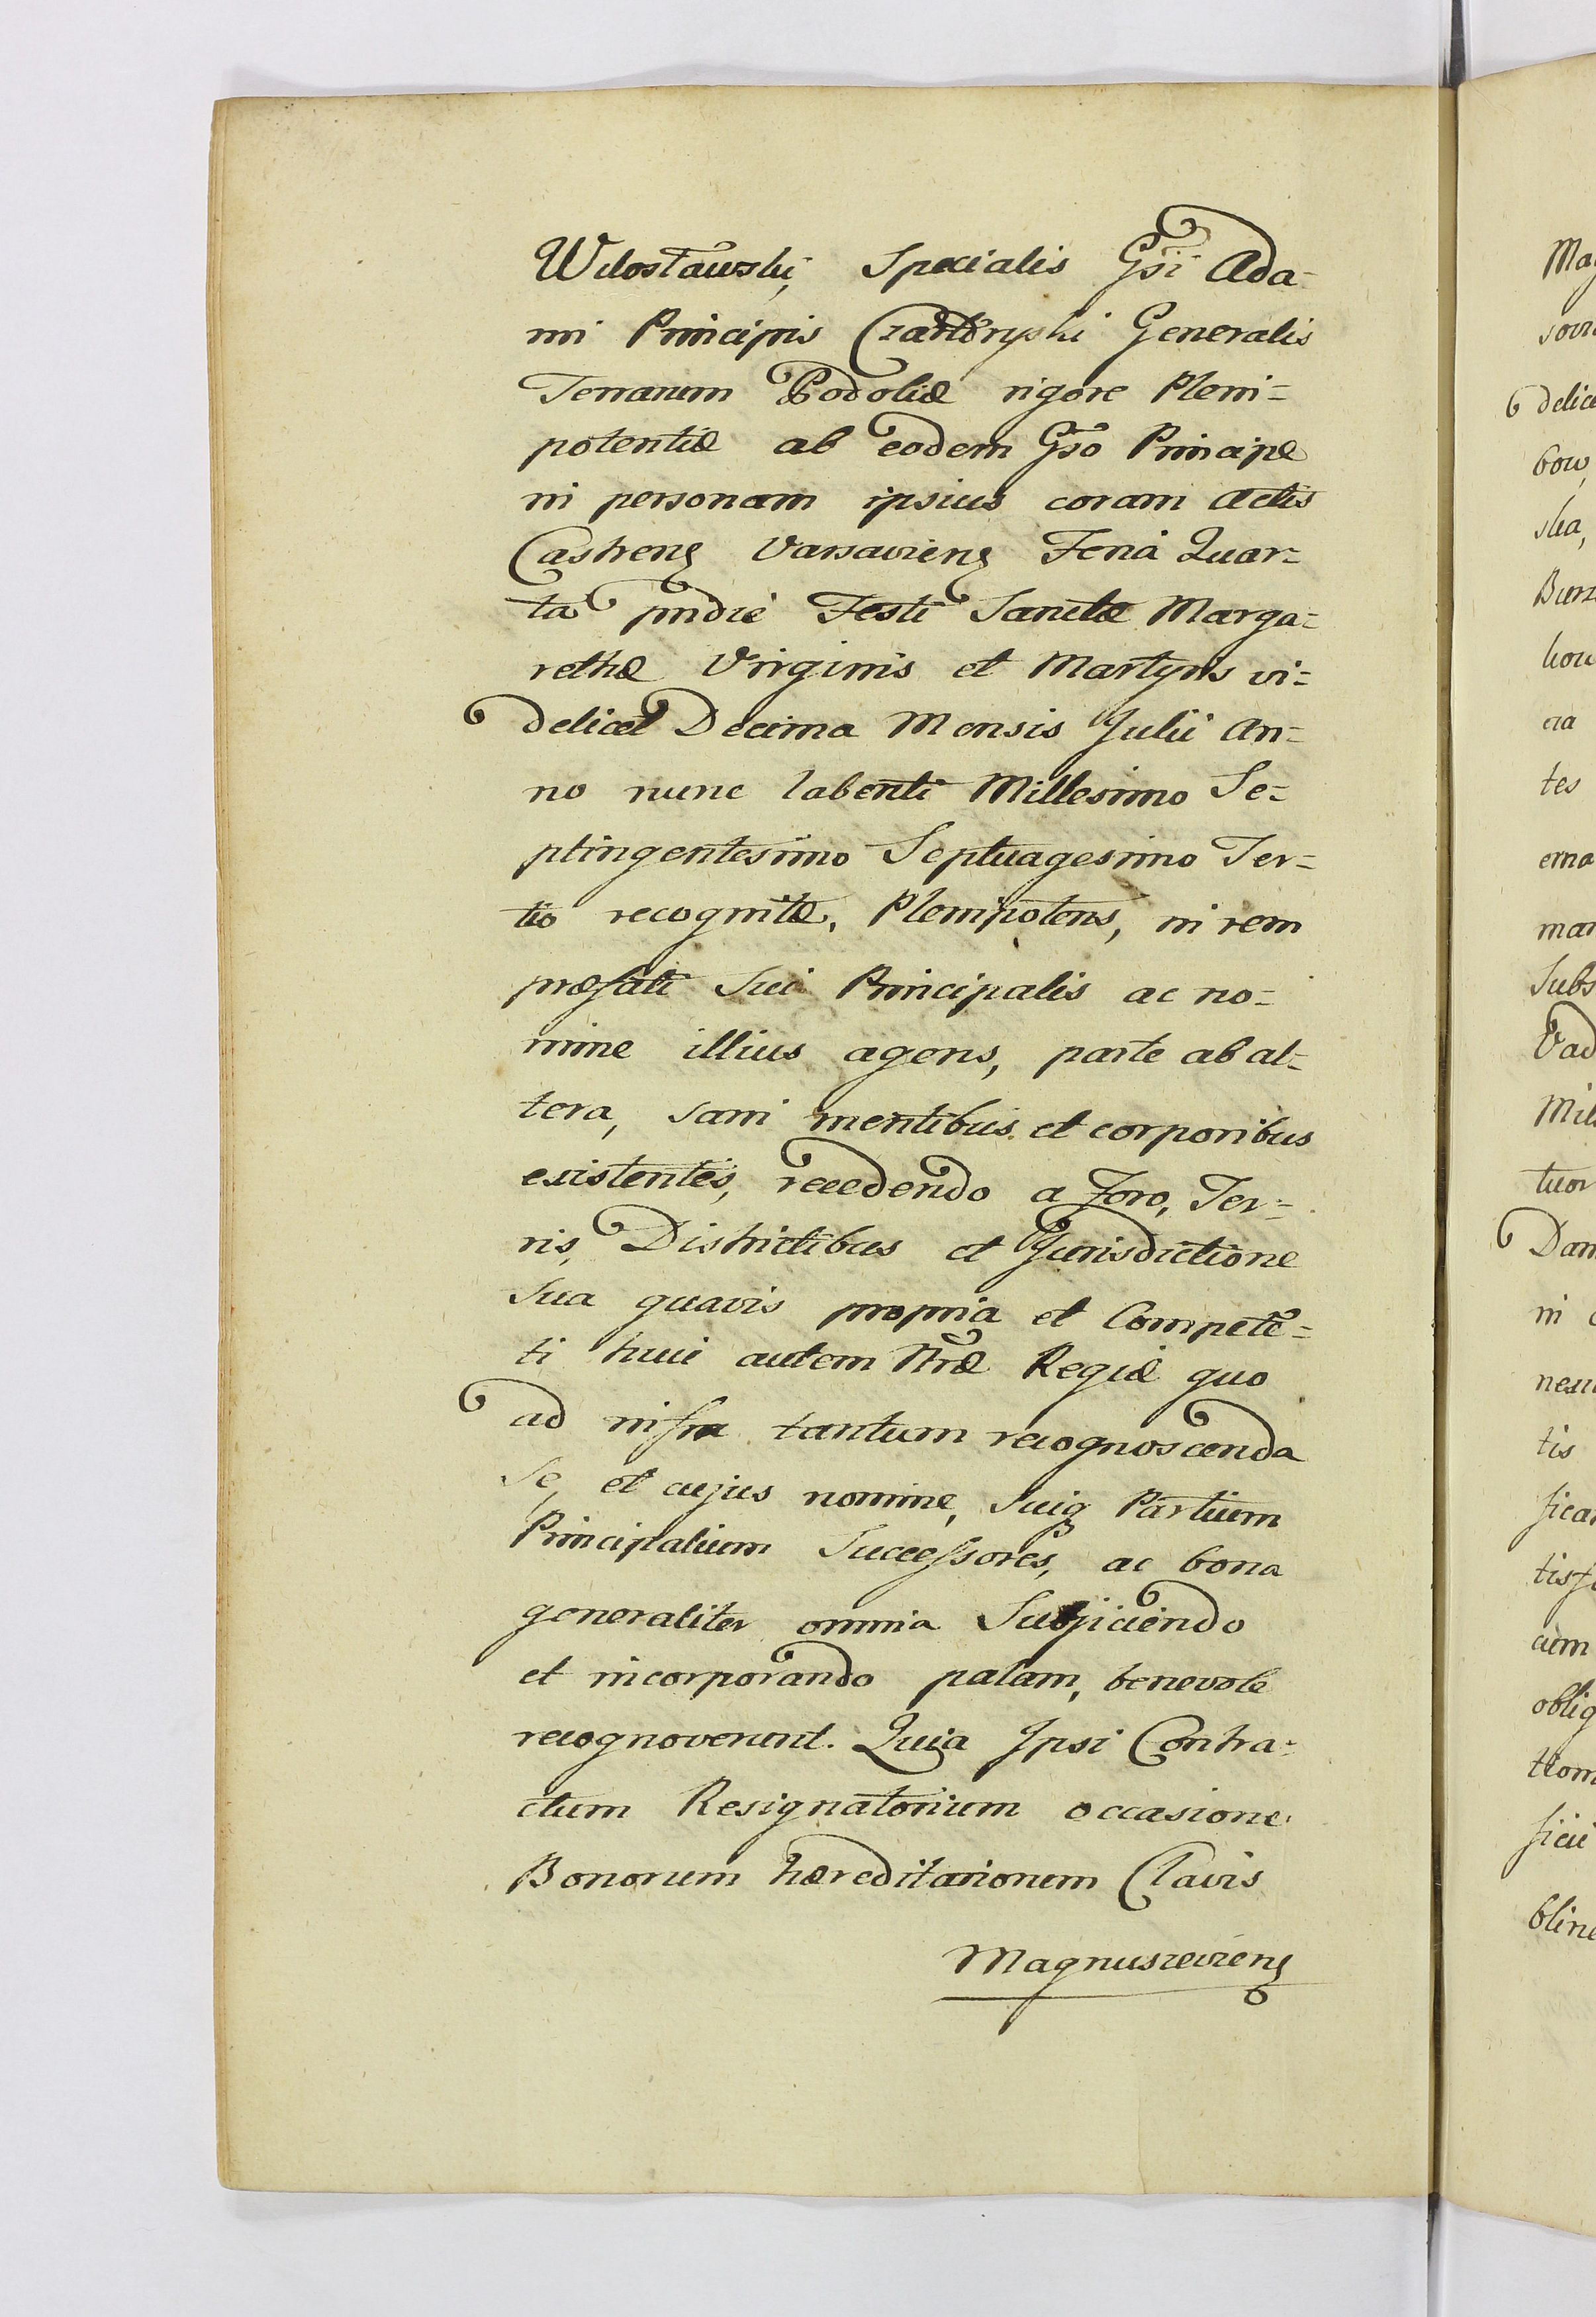 Wilostawski, Specialis Gsi Ada-
mi Principis Czartoryski Generalis
Terrarum Podoliæ vigore Pleni=
potentiæ ab eodem Gso Principe
in personam ipsius coram Actis
Castrens Varsaviens Feria Quar=
ta pridie Festi Sanctæ Marga=
rethæ Virginis et Martyris vi=
delicet Decima Mensis Julii An=
no nunc labenti Millesimo Se=
ptingentesimo Septuagesimo Ter=
tio recognitæ, Plenipotens, in rem
præfati Sui Principalis ac no=
mine illius agens, parte ab al=
tera, sani mentibus et corporibus
existentes, recedendo a Foro, Ter=
ris, Districtibus et Jurisdictione
Sua quavis propria et Compete=
ti huic autem Nræ Regiæ quo
ad infra tantum recognoscenda
Se, et cujus nomine, Suiq Partium
Principalium Successores, ac bona
generaliter omnia Subjiciendo
et incorporando palam, benevole
recognoverunt. Quia Ipsi Contra=
ctum Resignatorium occasione
Bonorum hæreditariorum Clavis
Magnuszeviens
Ma
delic
bow,
ska,
Burz
era
tes
erna
man
Subs
Vad
Mil
tuor
Dam
in
tis
ficar
tisf
cum
oblig
tiom
bline